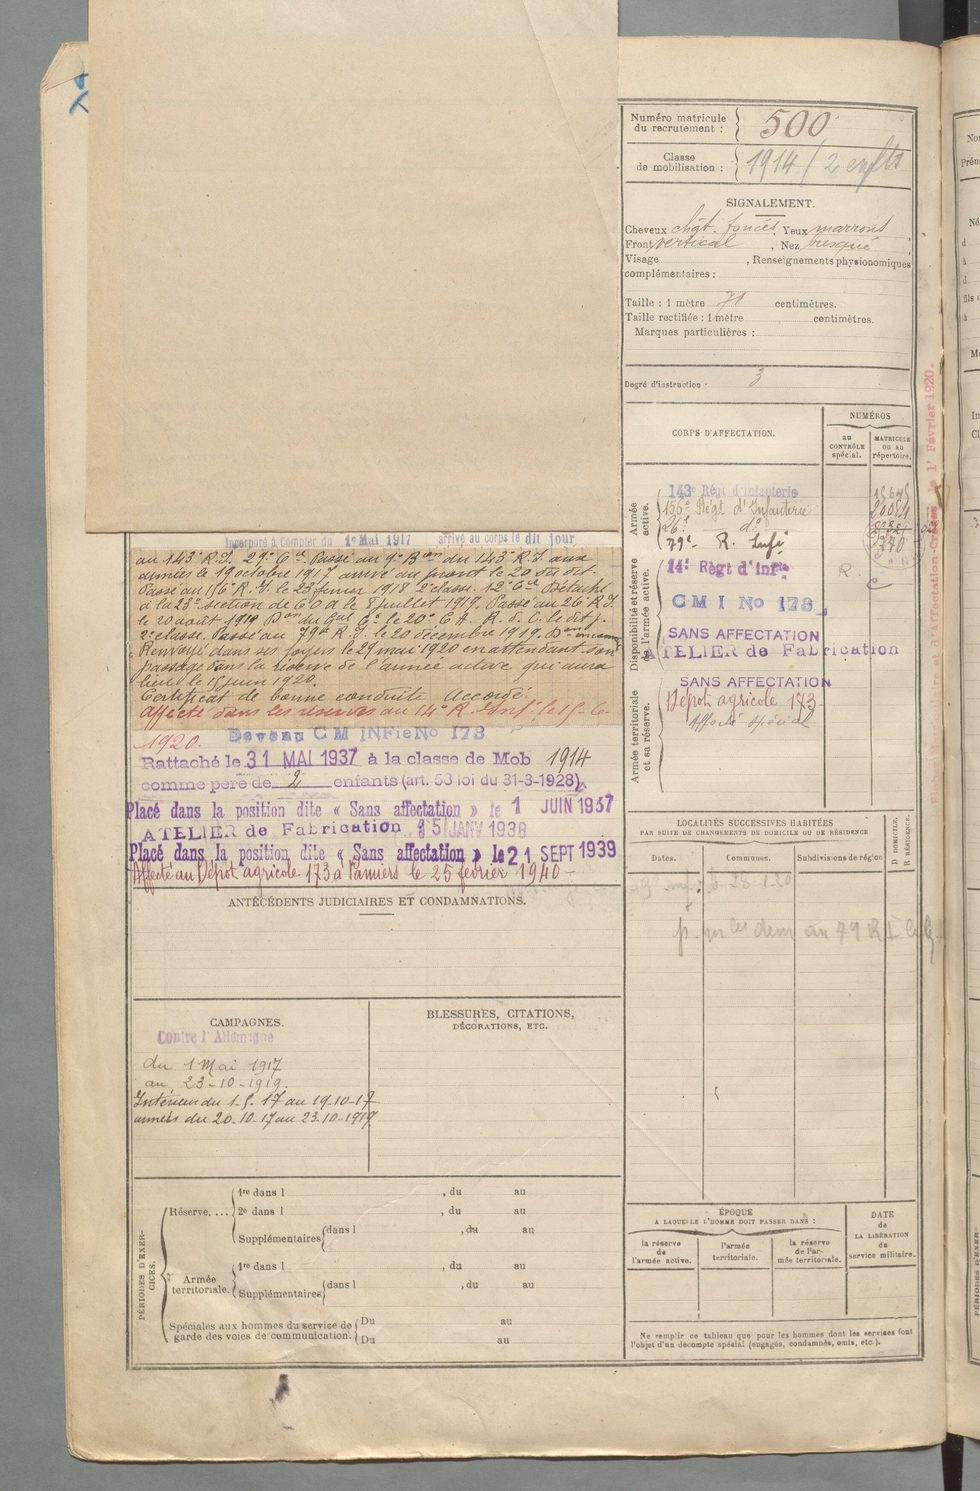 Numéro matricule
du recrutement : 500
Classe
de mobilisation : 1914 / 2 enfts
SIGNALEMENT.
Cheveux chât. foncés, Yeux marrons
Front vertical, Nez busqué
Visage , Renseignements physionomiques
complémentaires :
Taille : 1 mètre 71 centimètres.
Taille rectifiée : 1 mètre centimètres.
Marques particulières :
Degré d'instruction 3
CORPS D'AFFECTATION.
NUMÉROS
au CONTRÔLE spécial.
MATRICULE ou au répertoire.
Armée active.
143e Régt d'infanterie
156e Régt d'Infanterie
26e do
79e R. Infie
Disponibilité et réserve de l'armée active.
14e Règt d'Infte R. C
CMI No 173
SANS AFFECTATION
ATELIER de Fabrication
SANS AFFECTATION
Armée territoriale et sa réserve.
Dépot agricole 173
Affecté spécial
Incorporé à Compter du 1er Mai 1917 arrivé au corps le dit jour
au 143e R.I. 29e Cie Passé au 9e Bon du 143e R.I. aux
armées le 19 octobre 1917 arrivé au front le 20 du dit.
Passé au 156 R.I. le 23 février 1918 2e classe. 12e Cie Détaché
à la 23e section de C.O.A le 8 juillet 1919. Passé au 26e R.I
le 20 août 1919
2e classe. Passé au 79e R.I. le 20 décembre 1919.
Renvoyé dans ses foyers le 29 mai 1920 en attendant son
passage dans la réserve de l'armée active qui aura
lieu le 15 juin 1920.
Certificat de bonne conduite Accordé.
Affecté dans les réserves au 14e R. d'Infie le 15-6-
1920. Devenu CM INFie No 173
Rattaché le 31 MAI 1937 à la classe de Mob 1914
comme père de 2 enfants (art. 53 loi du 31-3-1928).
Placé dans la position dite « Sans affectation » le 1 JUIN 1937
ATELIER de Fabrication 15 JANV 1938
Placé dans la position dite « Sans affectation » le 21 SEPT 1939
Affecté au Dépot agricole 173 à Pamiers le 25 février 1940
ANTÉCÉDENTS JUDICIAIRES ET CONDAMNATIONS.
LOCALITÉS SUCCESSIVES HABITÉES
PAR SUITE DE CHANGEMENTS DE DOMICILE OU DE RÉSIDENCE
Dates. Communes. Subdivisions de région
D DOMICILE. R RÉSIDENCE.
CAMPAGNES.
Contre l'Allemagne
du 1 Mai 1917
au 23-10-1919.
Intérieur du 1.5.17 au 19.10.17
armées du 20.10.17 au 23.10.1919
BLESSURES, CITATIONS,
DÉCORATIONS, ETC.
PÉRIODES D'EXERCICES.
Réserve....
1re dans l , du au
2e dans l , du au
Supplémentaires dans l , du au
Armée territoriale.
1re dans l , du au
Supplémentaires dans l , du au
Spéciales aux hommes du service de
garde des voies de communication.
Du au
Du au
ÉPOQUE
A LAQUELLE L'HOMME DOIT PASSER DANS :
la réserve de l'armée active.
l'armée territoriale.
la réserve de l'armée territoriale.
DATE de LA LIBÉRATION du service militaire.
Ne remplir ce tableau que pour les hommes dont les services font
l'objet d'un décompte spécial (engagés, condamnés, omis, etc.).